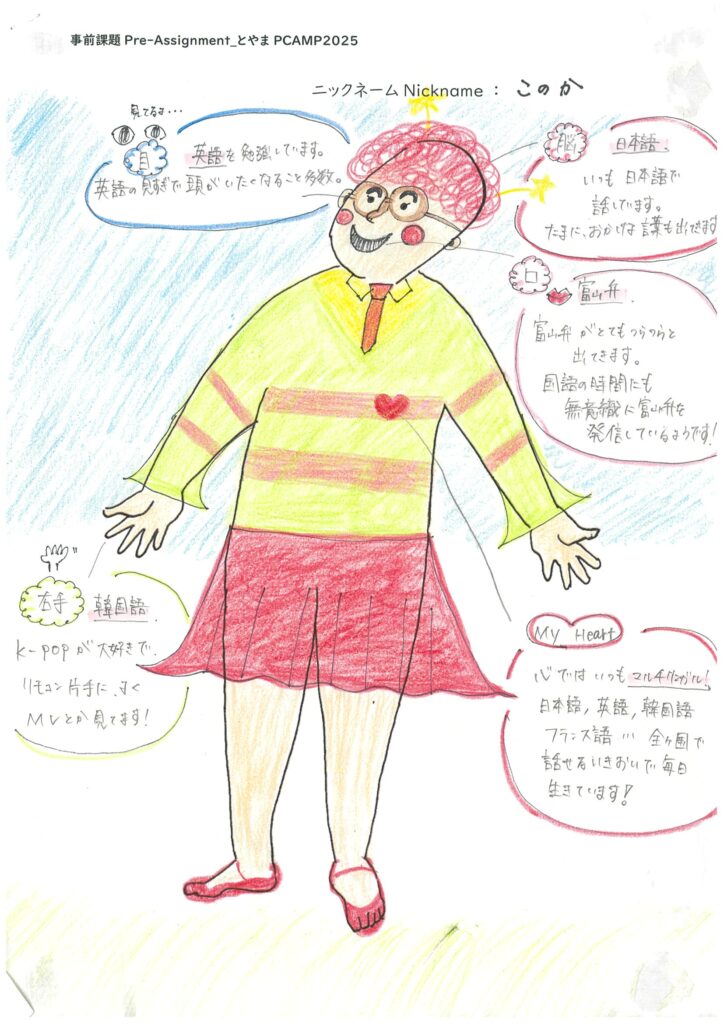 事前課題 Pre-Assignment_とやまPCAMP2025
ニックネーム Nickname ： このか
見てるよ・・・
目
英語を勉強しています。
英語の見すぎで頭がいたくなること多数。
脳
日本語.
いつも日本語で
話しています。
たまに、おかしな言葉も出てきます
口
富山弁.
富山弁がとてもつらつらと
出てきます。
国語の時間にも
無意識に富山弁を
発信しているようです!
右手
韓国語
K-popが大好きで.
リモコン片手に、よく
MVとか見てます!
My Heart
心ではいつもマルチリンガル!
日本語, 英語, 韓国語
フランス語… 全ヶ国で
話せるいきおいで毎日
生きています!